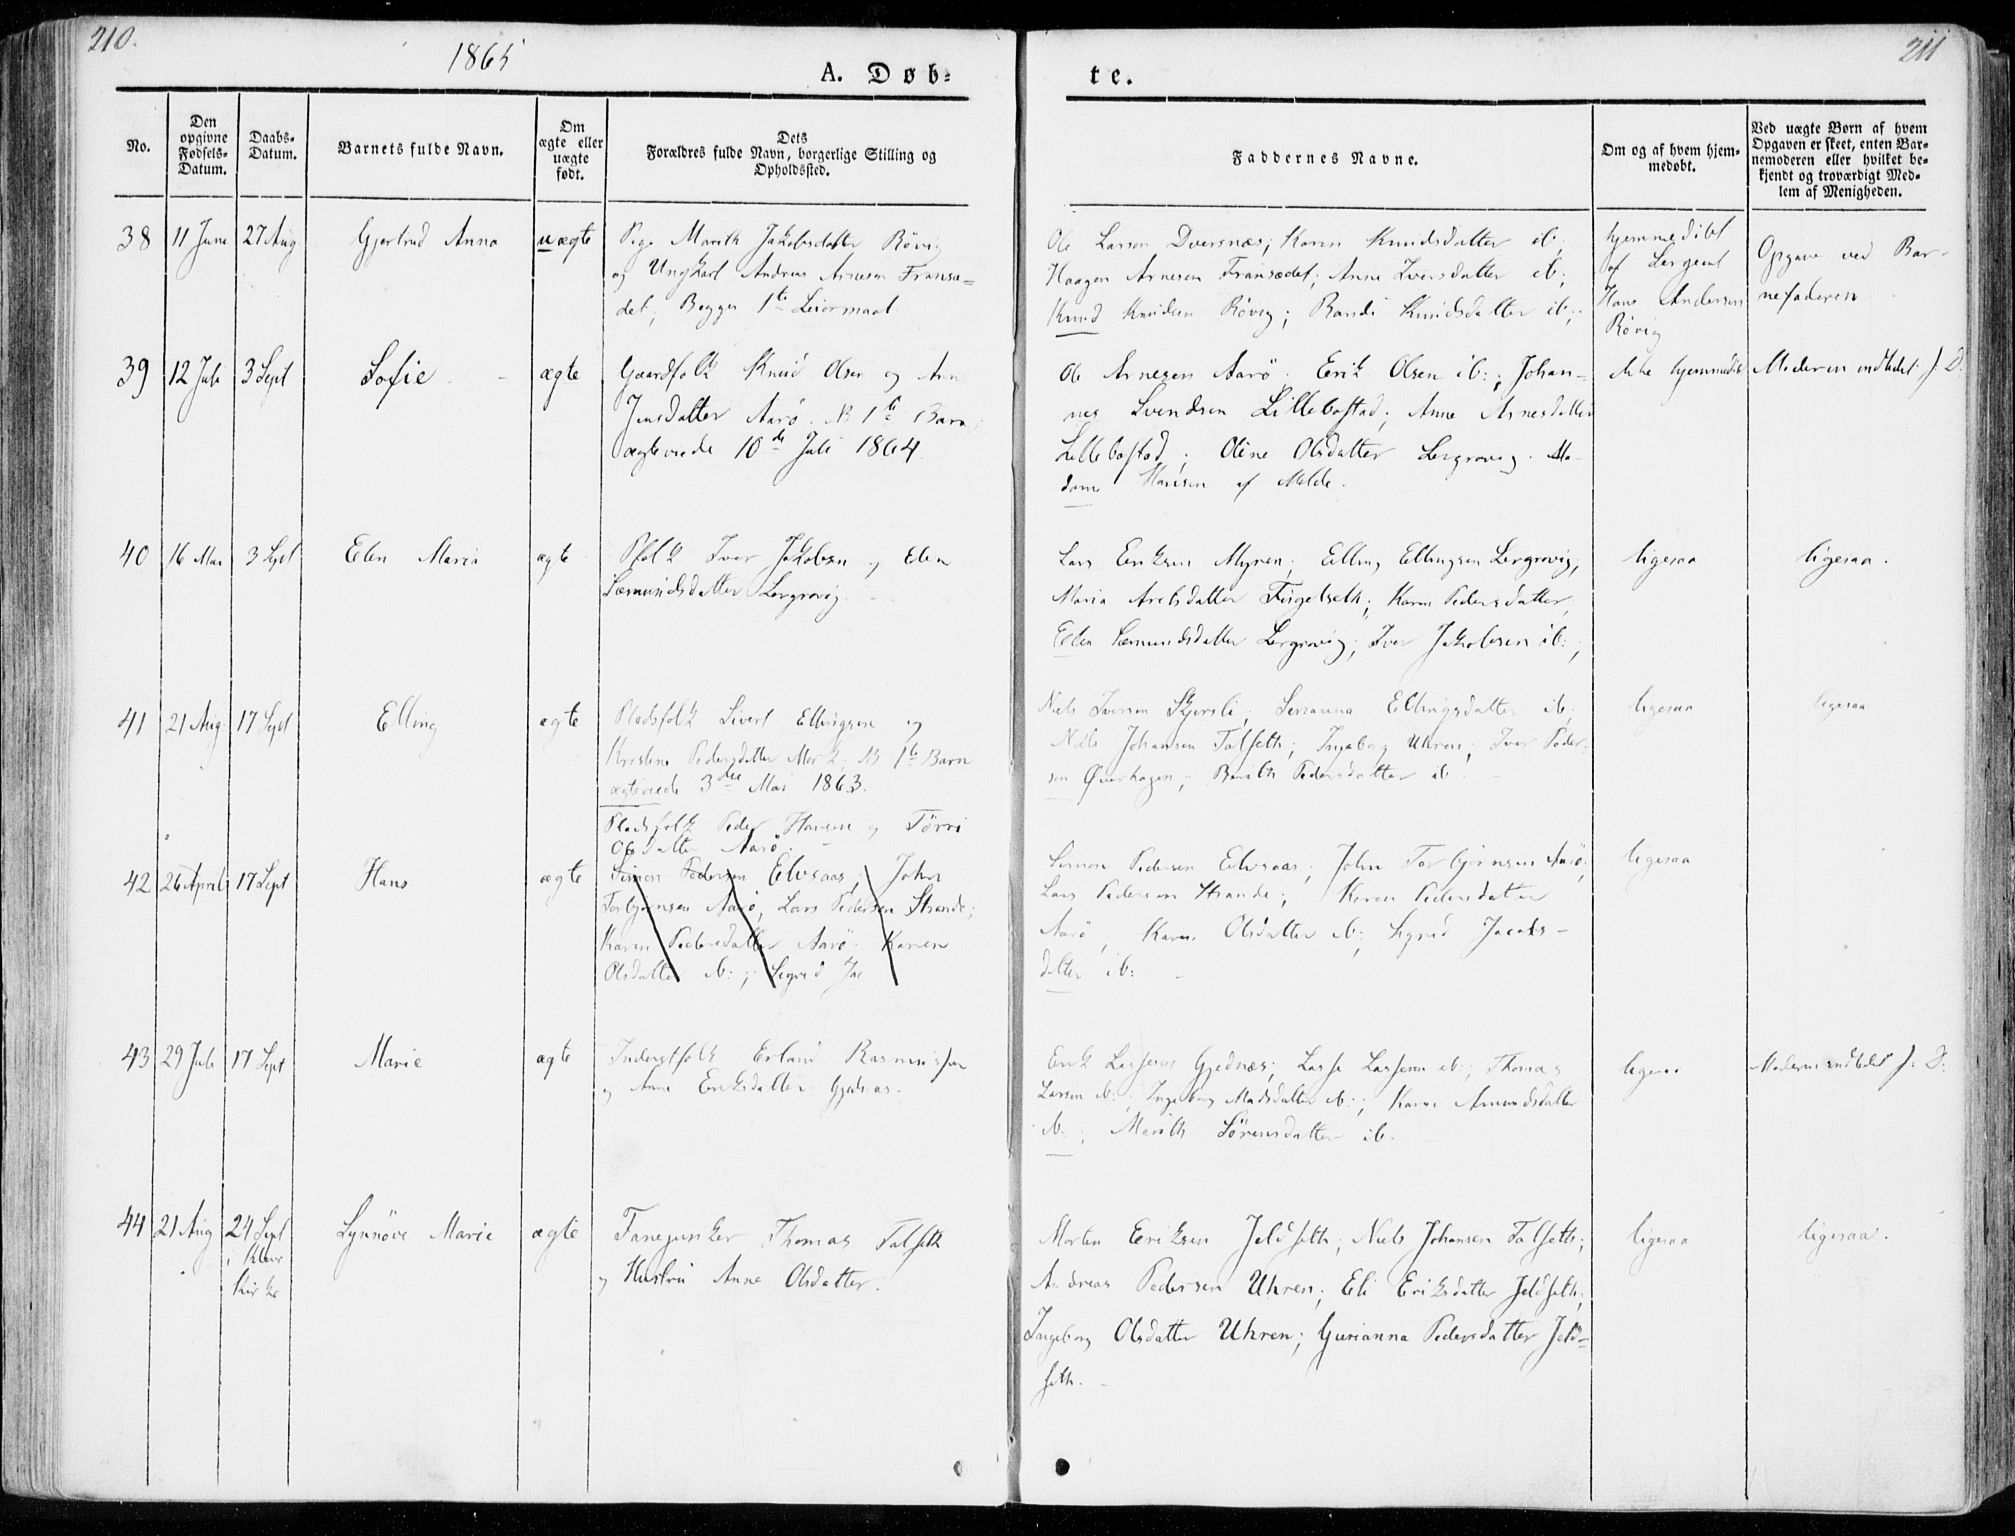 210.
1865
A. Døb-
te.
211
No.
Den opgivne Fødsels-Datum.
Daabs-Datum.
Barnets fulde Navn.
Om ægte eller uægte født.
Dets Forældres fulde Navn, borgerlige Stilling og Opholdssted.
Faddernes Navne.
Om og af hvem hjem-medøbt.
Ved uægte Børn af hvem Opgaven er skeet, enten Bar-nemoderen eller hvilket be-kjendt og troværdigt Med-lem af Menigheden.
38 11 June 27 Aug Gjertrud Anna uægte
Pige Marith Jakobsdatter Røvig
og Ungkarl Andreas Arnesen Fransæ-
det; Begges 1te Leiermaal.
Ole Larsen Dversnæs; Karen Knudsdatter ib;
Haagen Arnesen Fransædet; Anne Iversdatter ib;
Knud Knudsen Røvig; Randi Knudsdatter ib;
hjemmedøbt
af Sergeant
Hans Andersen
Røvig
Opgave ved Bar-
nefaderen.
39 12 Juli 3 Sept Sofie. ægte
Gaardfolk Knud Olsen og Ane
Jensdatter Aarö. NB 1te Barn;
ægteviede 10de Juli 1864
Ole Arnesen Aarö. Erik Olsen ib:; Johan-
nes Svendsen Lillebostad; Anne Arnesdatter
Lillebostad; Oline Olsdatter Lergrovig. Ma-
dame Hansen af Molde.
ikke hjemmedöbt
Moderen indledet. J. D.
40 16 Mai 3 Sept Elen Maria ægte
Pfolk Iver Jakobsen og Elen
Sæmundsdatter Lergrovig.
Lars Eriksen Myren; Elling Ellingsen Lergrovig;
Maria Arelsdatter Fugelseth; Karen Pedersdatter,
Elen Sæmundsdatter Lergrovig; Iver Jakobsen ib:;
ligesaa
ligesaa.
41 21 Aug 17 Sept Elling ægte
Pladsfolk Sivert Ellingsen og
Kristine Pedersdatter Mork; NB 1te Barn
ægteviede 3die Mai 1863.
Niels Iversen Skjersli; Serianna Ellingsdatter ib;
Niels Johansen Talseth; Ingeborg Uhren; Iver Peder-
sen Øverhagen; Berith Pedersdatter ib.
ligesaa
ligesaa
42 26 April 17 Sept Hans ægte
Pladsfolk Peder Hansen og Törri
Olsdatter Aarö.
Simon Pedersen Elvsaas; John
Torbjörnsen Aarö; Lars Pedersen Strande;
Karen Pedersdatter Aarö. Karen
Olsdatter ib:; Sigrid Ja
Simon Pedersen Elvsaas; John Torbjörnsen Aarö;
Lars Pedersen Strande; Karen Pedersdatter
Aarö; Karen Olsdatter ib; Sigrid Jacobs-
datter ib:
ligesaa
43 29 Juli 17 Sept Marie ægte
Inderstfolk Erland Rasmussen
og Anne Eriksdatter Gjednæs.
Erik Lassesen Gjednæs; Lasse Lassesen ib:; Thomas
Larsen ib:; Ingeborg Madsdatter ib:; Karen Amundsdatter
ib:; Marith Sörensdatter ib.
ligesaa
Moderen indledet J: D:
44 21 Aug 24 Sept Synnöve Marie ægte
i Kleve
Kirke
Fanejunker Thomas Talseth
og Hustru Anne Olsdatter.
Morten Eriksen Jeldseth; Niels Johansen Talseth;
Andreas Pedersen Uhren; Eli Eriksdatter Jeldseth;
Ingeborg Olsdatter Uhren; Gurianna Pedersdatter Jeld-
seth.
ligesaa
ligesaa.